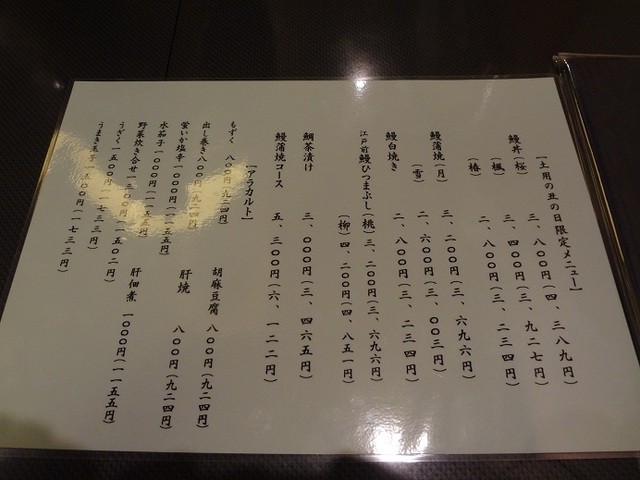 【土用の丑の日限定メニュー】
鰻丼（桜） 三、八〇〇円（四、三八九円）
（楓） 三、四〇〇円（三、九二七円）
（椿） 二、八〇〇円（三、二三四円）
鰻蒲焼（月） 三、二〇〇円（三、六九六円）
（雪） 二、六〇〇円（三、〇〇三円）
鰻白焼き 二、八〇〇円（三、二三四円）
江戸前鰻ひつまぶし（桃）三、二〇〇円（三、六九六円）
（柳）四、二〇〇円（四、八五一円）
鯛茶漬け 三、〇〇〇円（三、四六五円）
鰻蒲焼コース 五、三〇〇円（六、一二二円）
【アラカルト】
もずく 八〇〇円（九二四円） 胡麻豆腐 八〇〇円（九二四円）
出し巻き 八〇〇円（九二四円） 肝焼 八〇〇円（九二四円）
蛍いか塩辛 一〇〇〇円（一一五五円） 肝佃煮 一〇〇〇円（一一五五円）
水茄子 一〇〇〇円（一一五五円）
野菜炊き合せ 一三〇〇円（一五〇二円）
うざく 一五〇〇円（一七三三円）
うまき玉子 一五〇〇円（一七三三円）